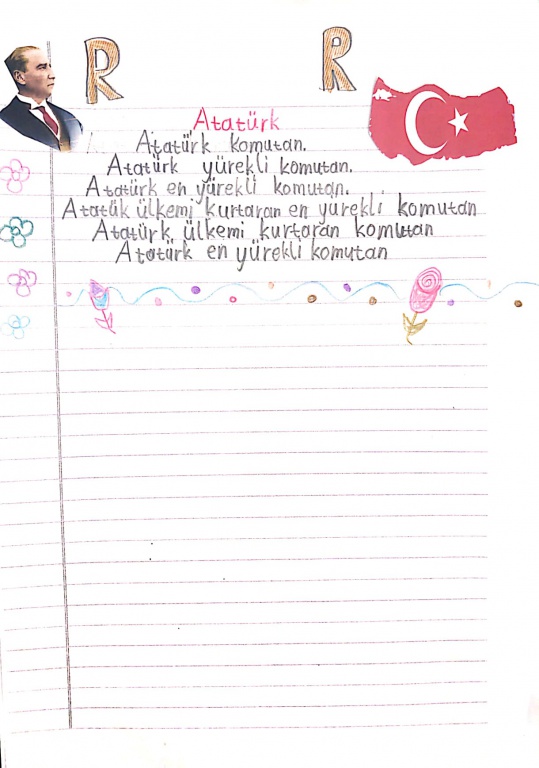 R R
Atatürk
Atatürk komutan.
Atatürk yürekli komutan.
Atatürk en yürekli komutan.
Atatük ülkemi kurtaran en yürekli komutan
Atatürk ülkemi kurtaran komutan
Atatürk en yürekli komutan